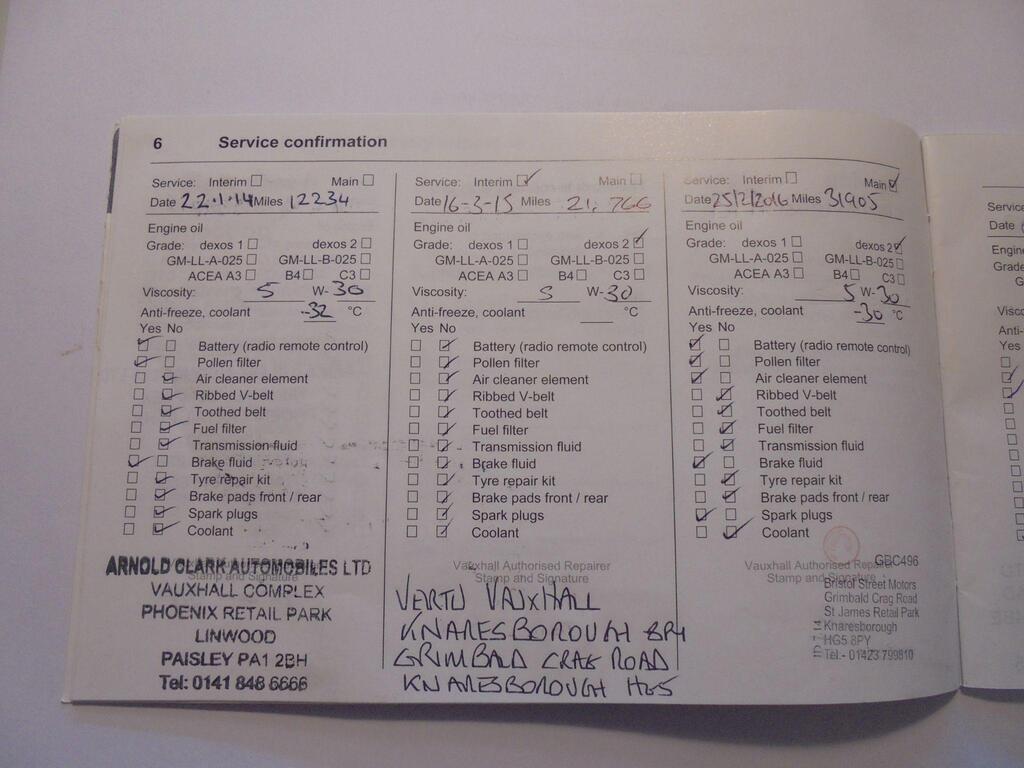 6 Service confirmation
Service: Interim Main
Date 22.1.14 Miles 12234
Engine oil
Grade: dexos 1 dexos 2
GM-LL-A-025 GM-LL-B-025
ACEA A3 B4 C3
Viscosity: 5 W-30
Anti-freeze, coolant -32 °C
Yes No
Battery (radio remote control)
Pollen filter
Air cleaner element
Ribbed V-belt
Toothed belt
Fuel filter
Transmission fluid
Brake fluid
Tyre repair kit
Brake pads front / rear
Spark plugs
Coolant
Stamp and Signature
ARNOLD CLARK AUTOMOBILES LTD
VAUXHALL COMPLEX
PHOENIX RETAIL PARK
LINWOOD
PAISLEY PA1 2BH
Tel: 0141 848 6666
Service: Interim Main
Date 16-3-15 Miles 21,766
Engine oil
Grade: dexos 1 dexos 2
GM-LL-A-025 GM-LL-B-025
ACEA A3 B4 C3
Viscosity: 5 W-30
Anti-freeze, coolant °C
Yes No
Battery (radio remote control)
Pollen filter
Air cleaner element
Ribbed V-belt
Toothed belt
Fuel filter
Transmission fluid
Brake fluid
Tyre repair kit
Brake pads front / rear
Spark plugs
Coolant
Vauxhall Authorised Repairer
Stamp and Signature
VERTU VAUXHALL
KNARESBOROUGH 8PY
GRIMBALD CRAG ROAD
KNARESBOROUGH HG5
Service: Interim Main
Date 25/2/2016 Miles 31905
Engine oil
Grade: dexos 1 dexos 2
GM-LL-A-025 GM-LL-B-025
ACEA A3 B4 C3
Viscosity: 5 W-30
Anti-freeze, coolant -30 °C
Yes No
Battery (radio remote control)
Pollen filter
Air cleaner element
Ribbed V-belt
Toothed belt
Fuel filter
Transmission fluid
Brake fluid
Tyre repair kit
Brake pads front / rear
Spark plugs
Coolant
Vauxhall Authorised Repairer
Stamp and Signature
GBC496
Bristol Street Motors
Grimbald Crag Road
St James Retail Park
Knaresborough
HG5 8PY
Tel:- 01423 799810
Service
Date
Engine
Grade
Visc
Anti-
Yes